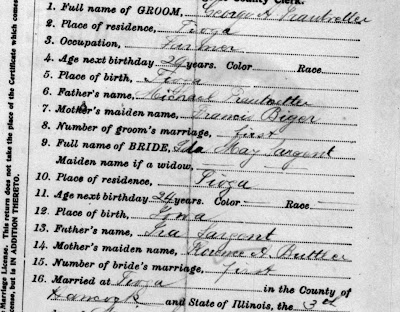 County Clerk.
1. Full name of GROOM, George A Trautvetter
2. Place of residence, Tioga
3. Occupation, Farmer
4. Age next birthday 26 years. Color Race
5. Place of birth, Tioga
6. Father's name, Michael Trautvetter
7. Mother's maiden name, Francis Bieger
8. Number of groom's marriage, first
9. Full name of BRIDE, Ida May Sargent
Maiden name if a widow,
10. Place of residence, Tioga
11. Age next birthday 24 years. Color Race
12. Place of birth, Iowa
13. Father's name, Ira Sargent
14. Mother's maiden name, Florence A. Butler
15. Number of bride's marriage, first
16. Married at Tioga in the County of
Hancock and State of Illinois, the 3rd
Marriage License. This return does not take the place of the Certificate which comes
cense, but is IN ADDITION THERETO.